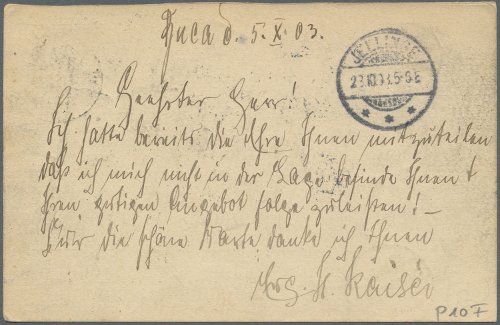 Puca d. 5. X. 03.
Geehrter Herr!
Ich hatte bereits die Ehre Ihnen mitzuteilen
daß ich mich nicht in der Lage befinde Ihnen
Ihren gütigen Angebot folge zu leisten! –
Für die schöne Karte danke ich Ihnen
H. Kaiser
23.10.03.5-6E
P10F